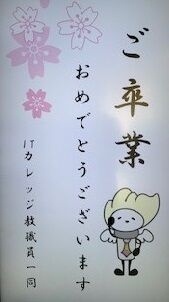 ご卒業
おめでとうございます
ITカレッジ教職員一同